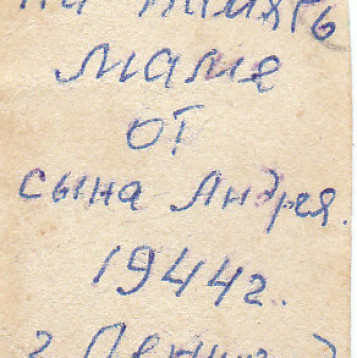 на память
маме
от
сына Андрея.
1944г.
г. Ленинград